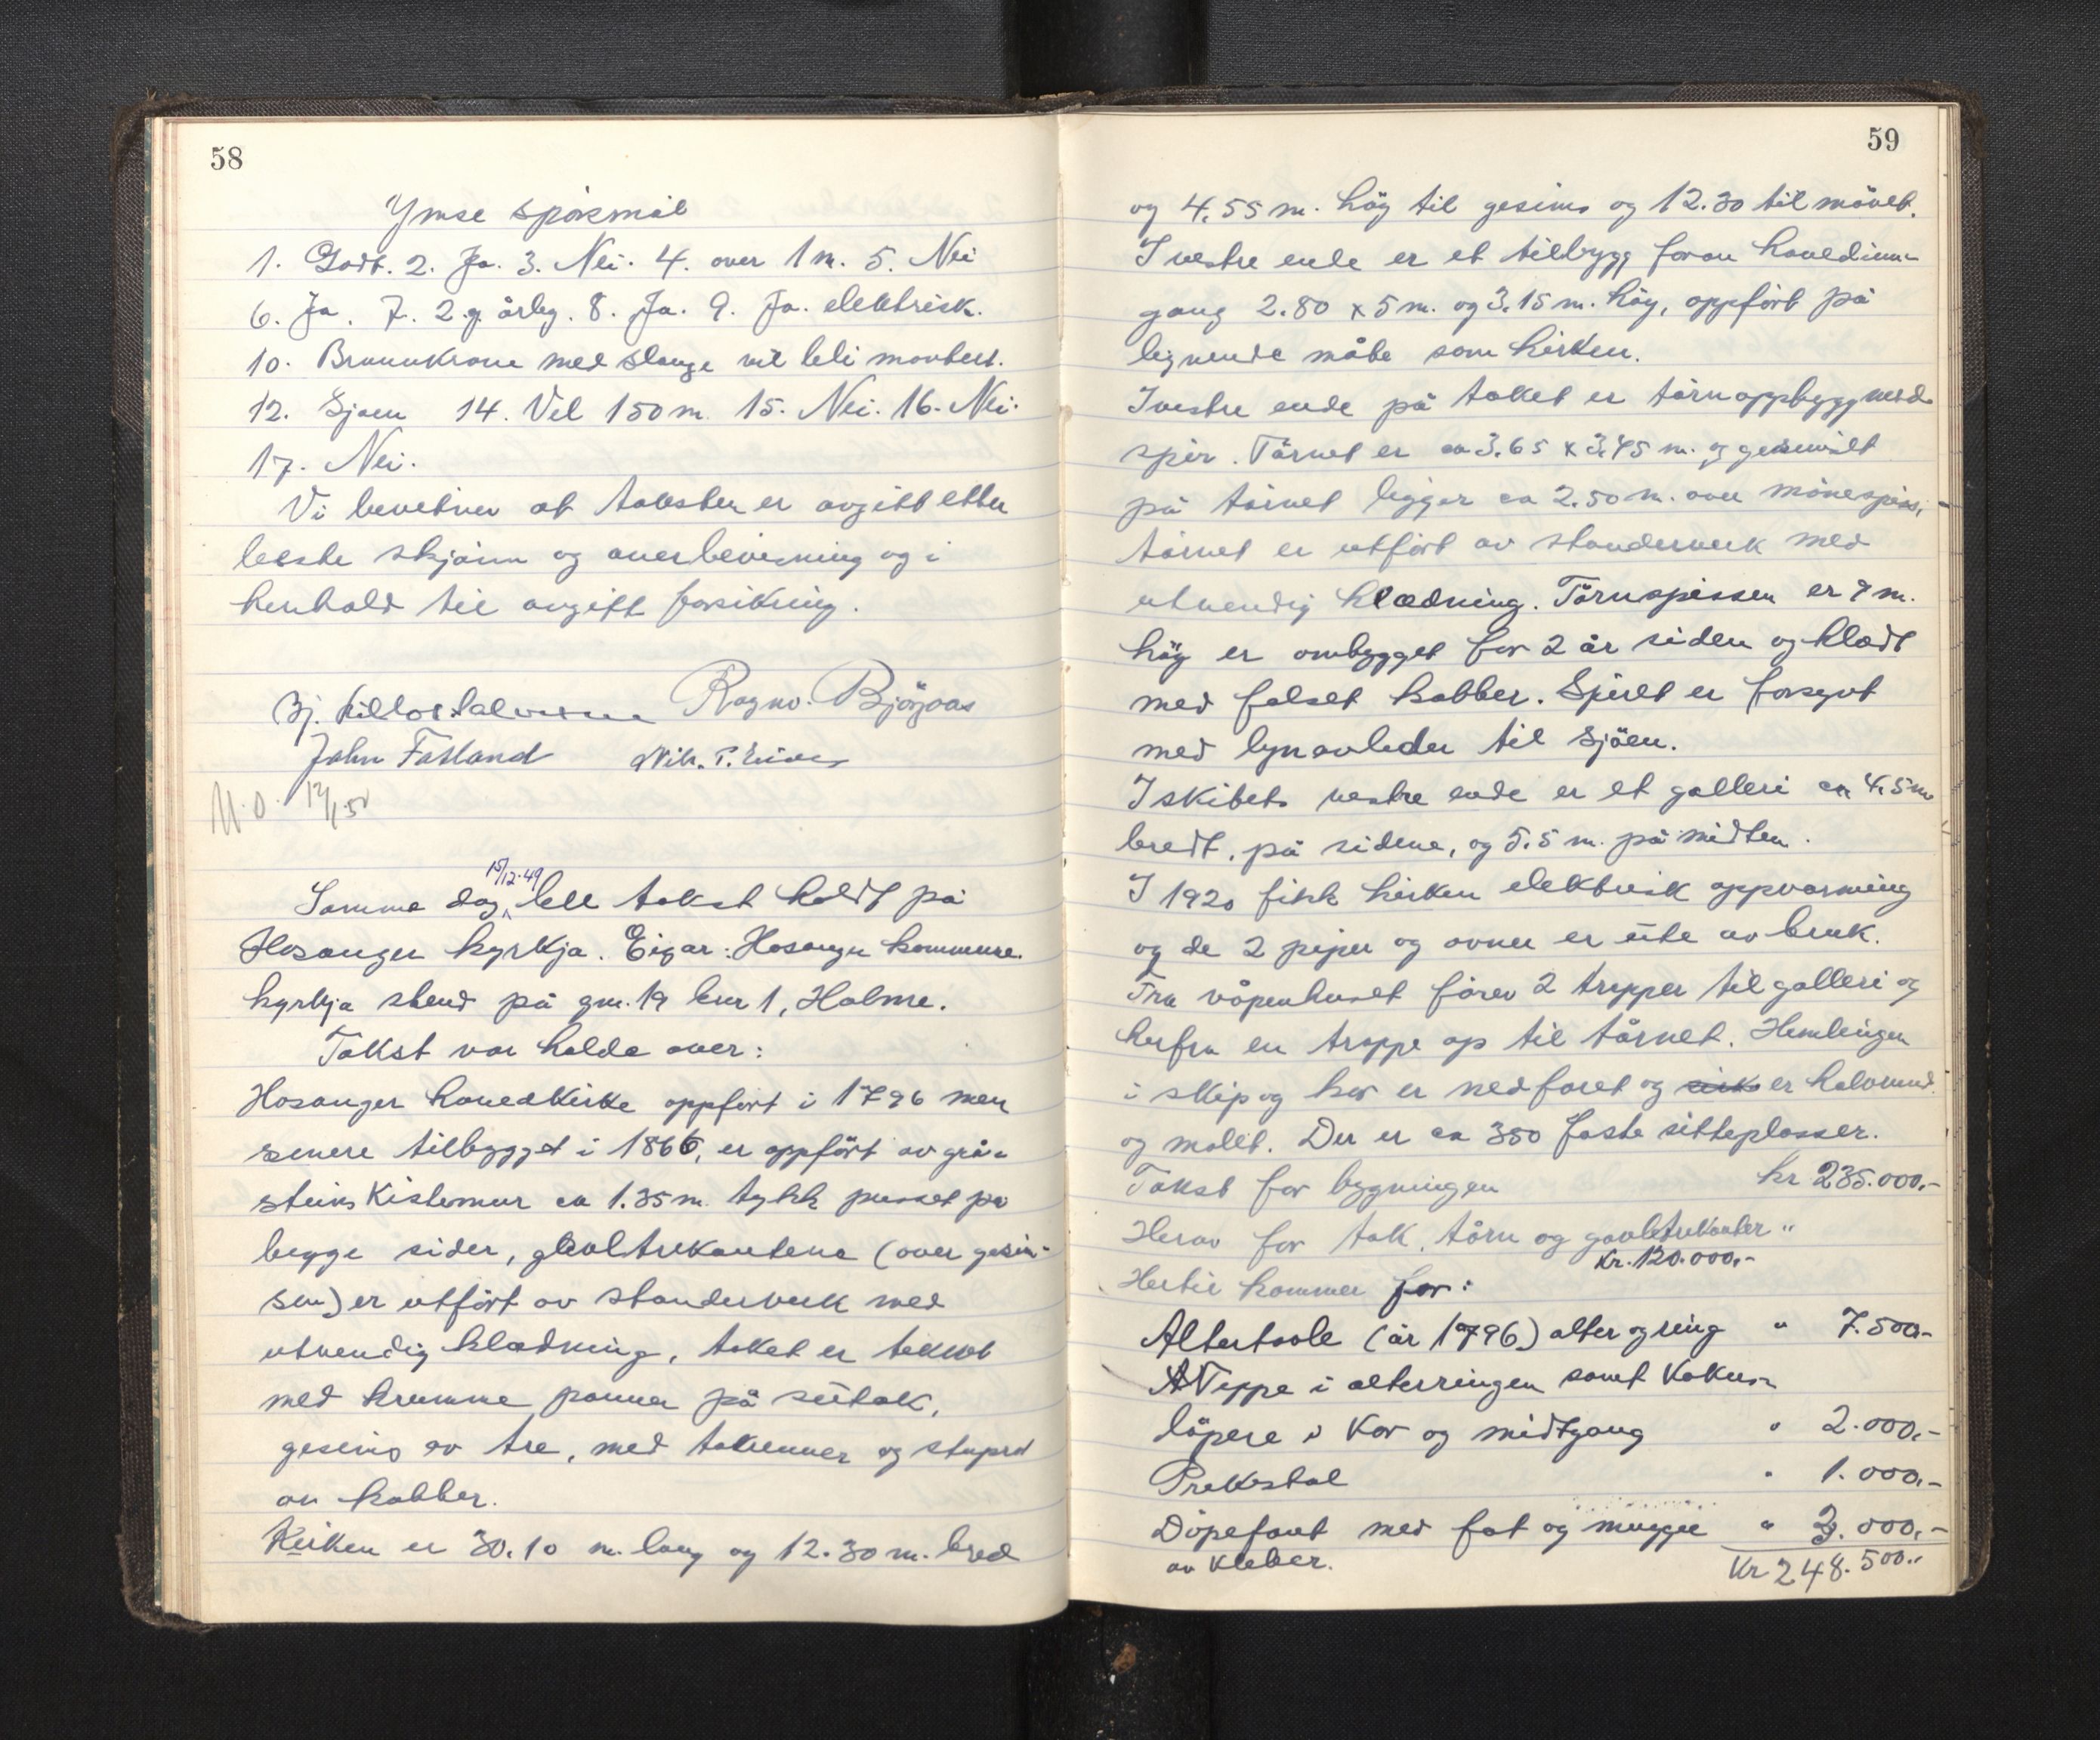 58
Ymse spörsmål
1. Godt. 2. Ja. 3. Nei. 4. over 1 m. 5. Nei
6. Ja. 7. 2.g. årleg. 8. Ja. 9. Ja. elektrisk.
10. Brannkrane med slange vil bli montert.
12. Sjøen 14. Vel 150 m. 15. Nei. 16. Nei.
17. Nei.
Vi bevitner at taksten er avgitt etter
beste skjönn og overbevisning og i
henhold til avgitt forsikring.
Bj. Ragnv. Björgaas
John Fatland Nils. T.
M.O. 12/1.50
Samme dag 15/12-49 ble takst holdt på
Hosanger kyrkja. Eigar: Hosanger kommune.
kyrkja stend på gnr. 19 bnr 1, Holme.
Takst var holde over:
Hosanger hovedkirke oppfort i 1796 men
senere tilbygget i 1866, er oppfört av grå-
steins Kistemur ca 1.35 m. tykk pusset på
begge sider, gavltrekantene (over gesim-
sen) er utfört av standerverk med
utvendig klædning, taket er tekket
med krumme panner på sutak,
gesims av tre, med takrenner og stuprör
av kobber.
Kirken er 30.10 m. lang og 12.30 m. bred
59
og 4.55 m. höy til gesims og 12.30 til mönet.
I vestre ende er et tilbygg foran hovedinn-
gang 2.80 x 5 m. og 3.15 m. höy, oppfört på
lignende måte som kirken.
I vestre ende på taket er tårnoppbygg med
spir. Tårnet er ca 3.65 x 3.45 m. og
på tårnet ligger ca 2.50 m. over mönespiss,
tårnet er utfört av standerverk med
utvendig klædning. Tårnspissen er 7 m.
höy er ombygget for 2 år siden og klædt
med falset kobber. Spiret er forsynt
med lynavleder til sjöen.
I skibets vestre ende er et galleri ca 4.5 m
bredt, på sidene, og 5.5 m. på midten.
I 1920 fikk kirken elektrisk oppvarming
og de 2 piper og ovner er ute av bruk.
Fra våpenhuset förer 2 trapper til galleri og
herfra en trappe op til tårnet. Hemlingen
i skip og kor er nedforet og er halvrund
og malt. Der er ca 350 faste sitteplasser.
Takst for bygningen kr 235.000,-
Herav for tak, tårn og gavltrekanter "
Kr. 120.000,-
Hertil kommer for:
Altertavle (år 1796) alter og ring " 7.500,-
Teppe i alterringen samt Kokus-
löpere i Kor og midtgang " 2.000,-
Prekestol " 1.000,-
Döpefont med fat og mugge " 3.000,-
av Kleber.
Kr 248.500,-